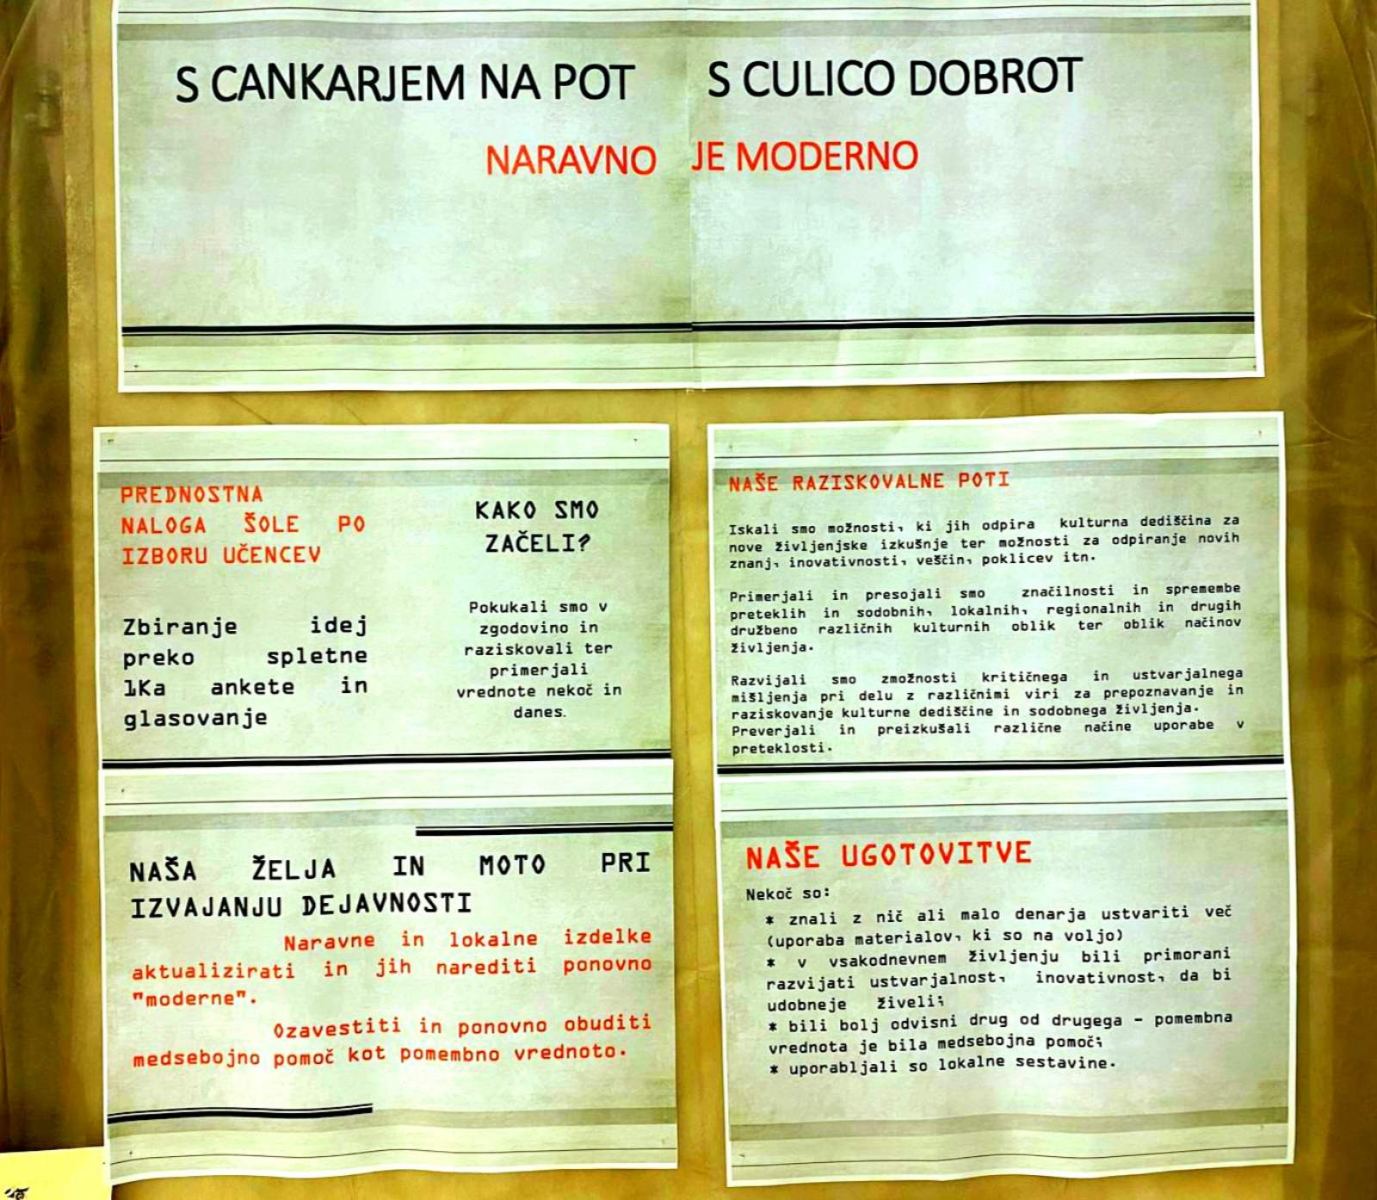 S CANKARJEM NA POT S CULICO DOBROT
NARAVNO JE MODERNO
PREDNOSTNA
NALOGA ŠOLE PO
IZBORU UČENCEV
Zbiranje idej
preko spletne
1Ka ankete in
glasovanje
KAKO SMO
ZAČELI?
Pokukali smo v
zgodovino in
raziskovali ter
primerjali
vrednote nekoč in
danes.
NAŠE RAZISKOVALNE POTI
Iskali smo možnosti, ki jih odpira kulturna dediščina za
nove življenjske izkušnje ter možnosti za odpiranje novih
znanj, inovativnosti, veščin, poklicev itn.
Primerjali in presojali smo značilnosti in spremembe
preteklih in sodobnih, lokalnih, regionalnih in drugih
družbeno različnih kulturnih oblik ter oblik načinov
življenja.
Razvijali smo zmožnosti kritičnega in ustvarjalnega
mišljenja pri delu z različnimi viri za prepoznavanje in
raziskovanje kulturne dediščine in sodobnega življenja.
Preverjali in preizkušali različne načine uporabe v
preteklosti.
NAŠA ŽELJA IN MOTO PRI
IZVAJANJU DEJAVNOSTI
Naravne in lokalne izdelke
aktualizirati in jih narediti ponovno
"moderne".
Ozavestiti in ponovno obuditi
medsebojno pomoč kot pomembno vrednoto.
NAŠE UGOTOVITVE
Nekoč so:
* znali z nič ali malo denarja ustvariti več
(uporaba materialov, ki so na voljo)
* v vsakodnevnem življenju bili primorani
razvijati ustvarjalnost, inovativnost, da bi
udobneje živeli;
* bili bolj odvisni drug od drugega - pomembna
vrednota je bila medsebojna pomoč;
* uporabljali so lokalne sestavine.